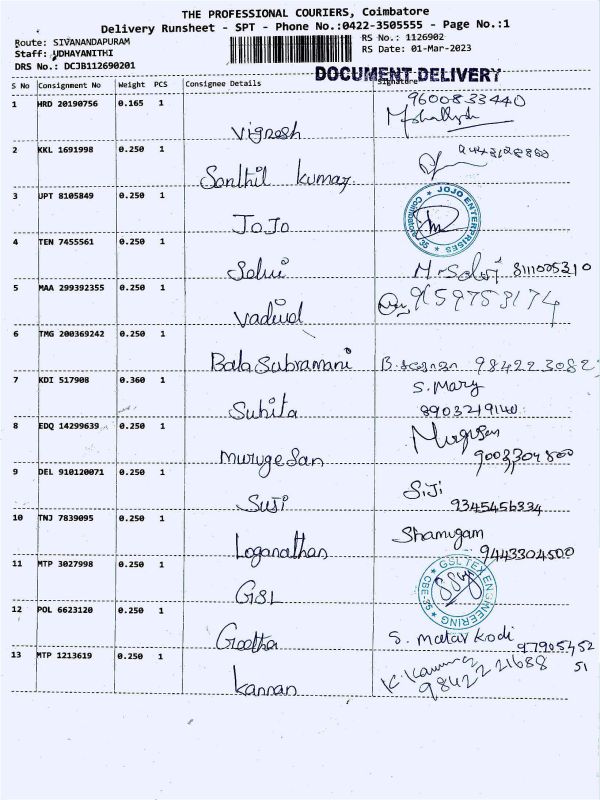 THE PROFESSIONAL COURIERS, Coimbatore
Delivery Runsheet - SPT - Phone No.:0422-3505555 - Page No.:1
Route: SIVANANDAPURAM
RS No.: 1126902
Staff: UDHAYANITHI
RS Date: 01-Mar-2023
DRS No.: DCJB112690201
DOCUMENT DELIVERY
S No Consignment No Weight PCS Consignee Details Signature
1 HRD 20190756 0.165 1 9600833440
Vignesh
2 KKL 1691998 0.250 1
Senthil kumar
3 UPT 8105849 0.250 1
JoJo JOJO ENTERPRISES Coimbatore-35
4 TEN 7455561 0.250 1
Selvi M.Selvi 8111005310
5 MAA 299392355 0.250 1 9159758174
Vadivel
6 TMG 200369242 0.250 1
Bala Subramani 984223082
7 KDI 517908 0.360 1 S. Mary
Suhita 8903219140
8 EDQ 14299639 0.250 1 Murugesan
Murugesan 9003304800
9 DEL 910120071 0.250 1 SiJi
SuJi 9345456334
10 TNJ 7839095 0.250 1 Shamugam
Loganathan 9443304500
11 MTP 3027998 0.250 1 GSL TEX ENGINEERING CBE-35
GSL
12 POL 6623120 0.250 1
Geetha 97905452
51
13 MTP 1213619 0.250 1
Kannan 9842221688